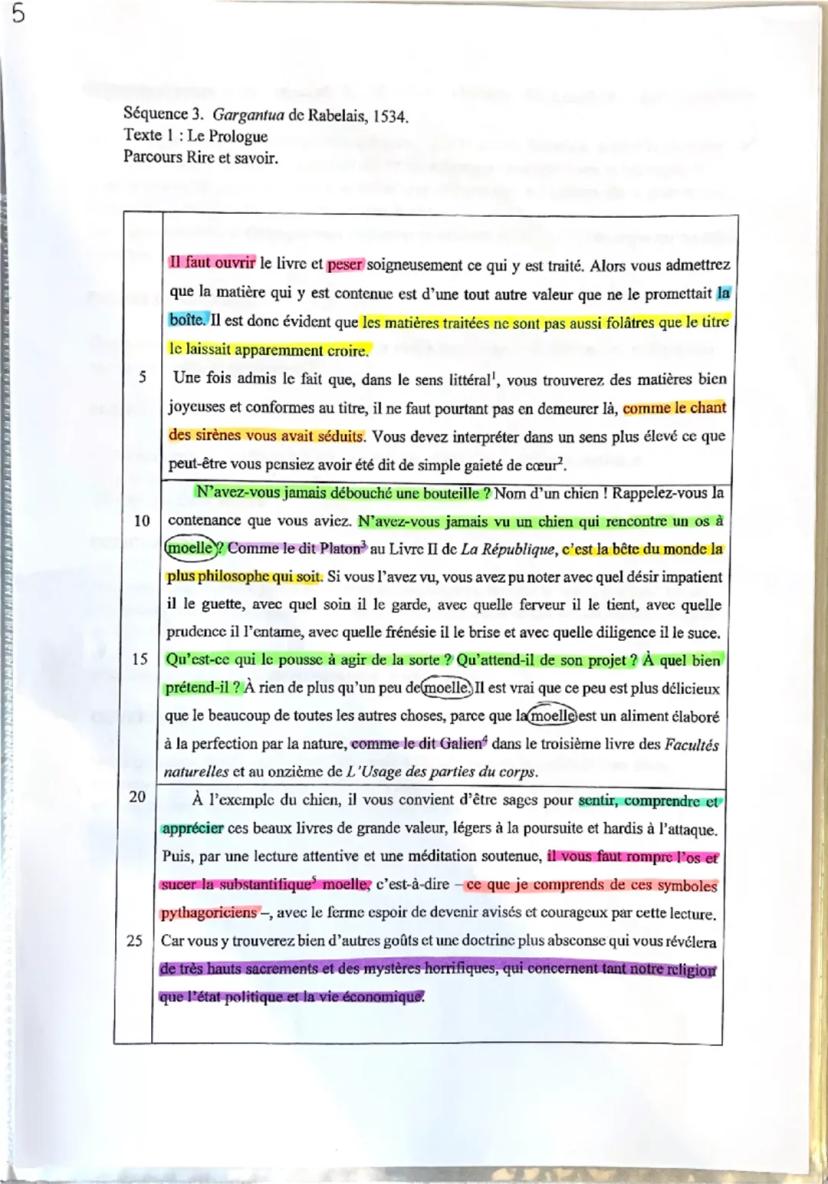 5
Séquence 3. Gargantua de Rabelais, 1534.
Texte 1 : Le Prologue
Parcours Rire et savoir.
Il faut ouvrir le livre et peser soigneusement ce qui y est traité. Alors vous admettrez
que la matière qui y est contenue est d'une tout autre valeur que ne le promettait la
boîte. Il est donc évident que les matières traitées ne sont pas aussi folâtres que le titre
le laissait apparemment croire.
5 Une fois admis le fait que, dans le sens littéral¹, vous trouverez des matières bien
joyeuses et conformes au titre, il ne faut pourtant pas en demeurer là, comme le chant
des sirènes vous avait séduits. Vous devez interpréter dans un sens plus élevé ce que
peut-être vous pensiez avoir été dit de simple gaieté de cœur².
N'avez-vous jamais débouché une bouteille ? Nom d'un chien ! Rappelez-vous la
10 contenance que vous aviez. N'avez-vous jamais vu un chien qui rencontre un os à
moelle ? Comme le dit Platon³ au Livre II de La République, c'est la bête du monde la
plus philosophe qui soit. Si vous l'avez vu, vous avez pu noter avec quel désir impatient
il le guette, avec quel soin il le garde, avec quelle ferveur il le tient, avec quelle
prudence il l'entame, avec quelle frénésie il le brise et avec quelle diligence il le suce.
15 Qu'est-ce qui le pousse à agir de la sorte ? Qu'attend-il de son projet ? À quel bien
prétend-il ? À rien de plus qu'un peu de moelle. Il est vrai que ce peu est plus délicieux
que le beaucoup de toutes les autres choses, parce que la moelle est un aliment élaboré
à la perfection par la nature, comme le dit Galien⁴ dans le troisième livre des Facultés
naturelles et au onzième de L'Usage des parties du corps.
20 À l'exemple du chien, il vous convient d'être sages pour sentir, comprendre et
apprécier ces beaux livres de grande valeur, légers à la poursuite et hardis à l'attaque.
Puis, par une lecture attentive et une méditation soutenue, il vous faut rompre l'os et
sucer la substantifique⁵ moelle, c'est-à-dire – ce que je comprends de ces symboles
pythagoriciens –, avec le ferme espoir de devenir avisés et courageux par cette lecture.
25 Car vous y trouverez bien d'autres goûts et une doctrine plus absconse qui vous révélera
de très hauts sacrements et des mystères horrifiques, qui concernent tant notre religion
que l'état politique et la vie économique.